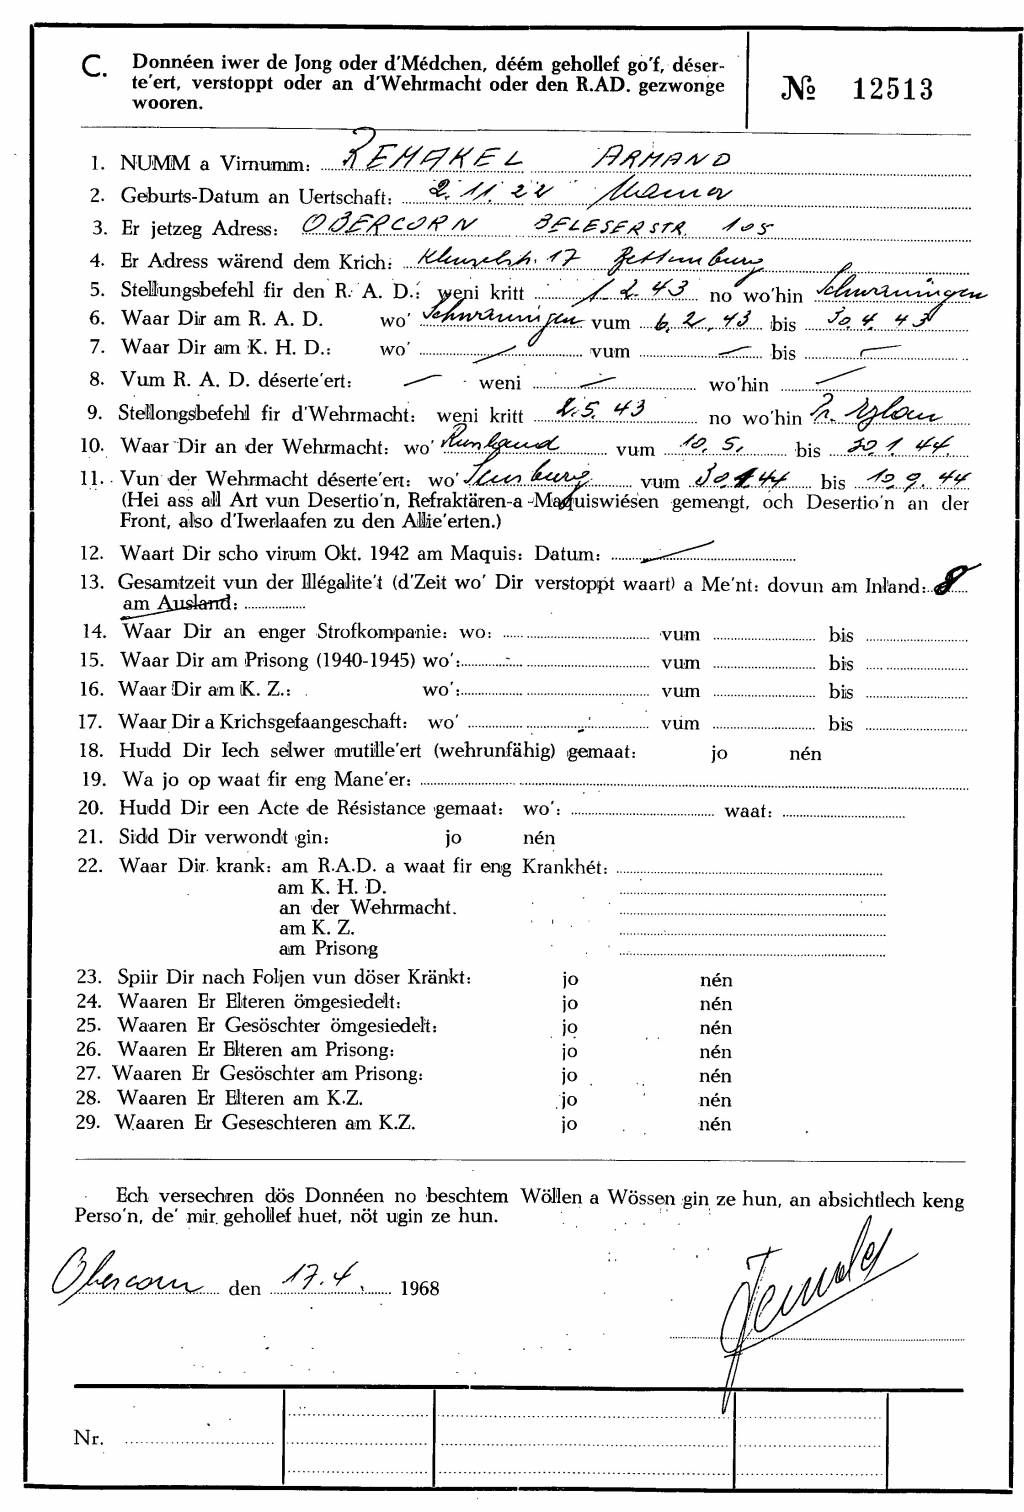 C. Donnéen iwer de Jong oder d'Médchen, déém gehollef go'f, déser-
te'ert, verstoppt oder an d'Wehrmacht oder den R.AD. gezwonge
wooren.
№ 12513
1. NUMM a Virnumm: REMAKEL ARMAND
2. Geburts-Datum an Uertschaft: 2.11.22 Mamer
3. Er jetzeg Adress: OBERCORN BELESERSTR. 105
4. Er Adress wärend dem Krich: 17 Bettemburg
5. Stellungsbefehl fir den R. A. D.: weni kritt 1.2.43 no wo'hin Schwaningen
6. Waar Dir am R. A. D. wo' Schwaningen vum 6.2.43 bis 30.4.43
7. Waar Dir am K. H. D.: wo' — vum — bis —
8. Vum R. A. D. déserte'ert: — weni — wo'hin —
9. Stellongsbefehl fir d'Wehrmacht: weni kritt 2.5.43 no wo'hin Pr. Eylau
10. Waar Dir an der Wehrmacht: wo' Russland vum 10.5. bis 30.1.44.
11. Vun der Wehrmacht déserte'ert: wo' vum 30.1.44 bis 10.9.44
(Hei ass all Art vun Desertio'n, Refraktären-a -Maquiswiésen gemengt, och Desertio'n an der
Front, also d'Iwerlaafen zu den Allie'erten.)
12. Waart Dir scho virum Okt. 1942 am Maquis: Datum: —
13. Gesamtzeit vun der Illégalite't (d'Zeit wo' Dir verstoppt waart) a Me'nt: dovun am Inland: 8
am Ausland:
14. Waar Dir an enger Strofkompanie: wo: vum bis
15. Waar Dir am Prisong (1940-1945) wo': vum bis
16. Waar Dir am K. Z.: wo': vum bis
17. Waar Dir a Krichsgefaangeschaft: wo' vum bis
18. Hudd Dir Iech selwer mutille'ert (wehrunfähig) gemaat: jo nén
19. Wa jo op waat fir eng Mane'er:
20. Hudd Dir een Acte de Résistance gemaat: wo': waat:
21. Sidd Dir verwondt gin: jo nén
22. Waar Dir krank: am R.A.D. a waat fir eng Krankhét:
am K. H. D.
an der Wehrmacht.
am K. Z.
am Prisong
23. Spiir Dir nach Foljen vun döser Kränkt: jo nén
24. Waaren Er Elteren ömgesiedelt: jo nén
25. Waaren Er Gesöschter ömgesiedelt: jo nén
26. Waaren Er Elteren am Prisong: jo nén
27. Waaren Er Gesöschter am Prisong: jo nén
28. Waaren Er Elteren am K.Z. jo nén
29. Waaren Er Geseschteren am K.Z. jo nén
Ech versechren dös Donnéen no beschtem Wöllen a Wössen gin ze hun, an absichtlech keng
Perso'n, de' mir gehollef huet, nöt ugin ze hun.
Obercorn den 17.4. 1968
Nr.